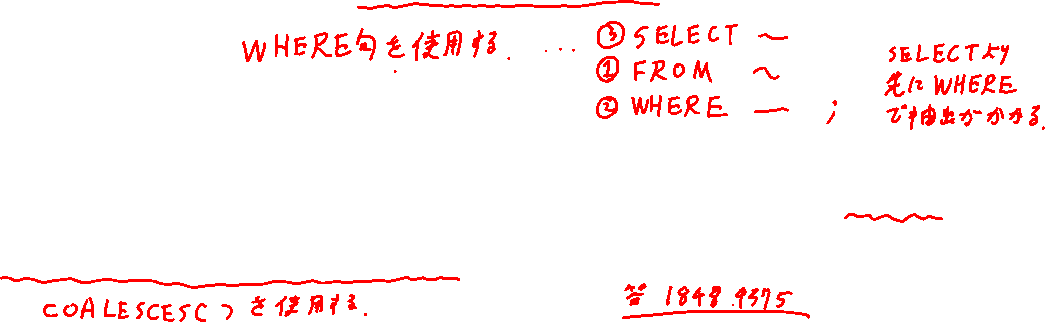 WHERE句を使用する. ... ③ SELECT ～
① FROM ～
② WHERE ― ;
SELECTより
先にWHERE
で抽出がかかる.
COALESCESC つを使用する.
答 1848.9375